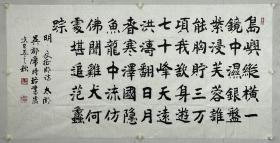 島嶼縱橫一
鏡中濕銀盤
紫浸芙蓉誰
能胸貯三萬
頃我欲身遊
七十峰天遠
洪濤翻日月
春寒澤國隱
魚龍中流仿
佛聞雞犬何
處堪追范蠡
踪
明文徵明詩太湖
吳郡席時珞書
之秋